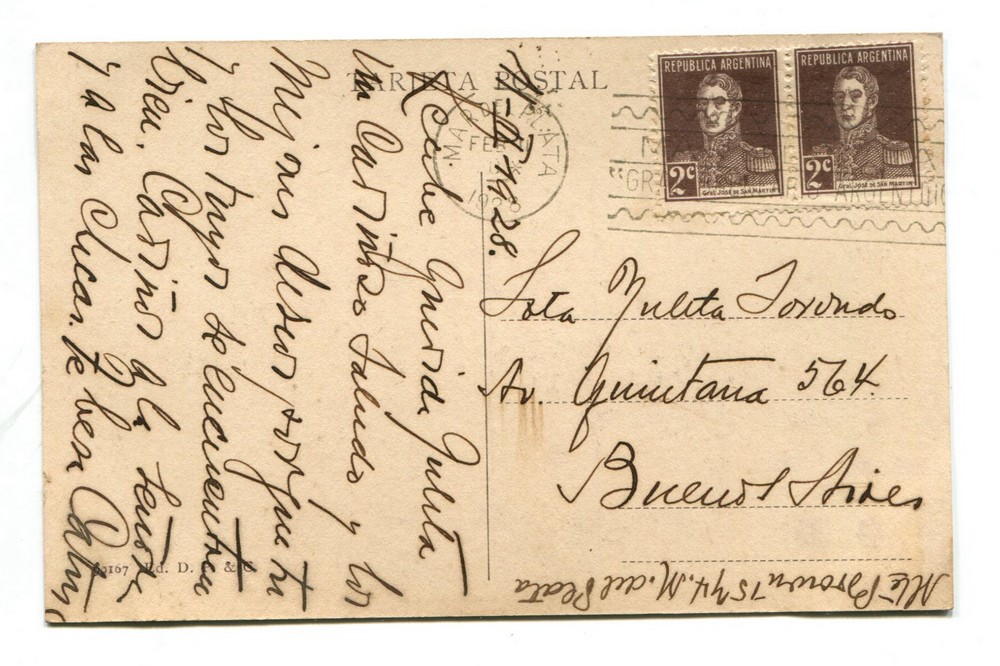 TARJETA POSTAL
REPUBLICA ARGENTINA
2c
Gral. José de San Martín
REPUBLICA ARGENTINA
2c
Gral. José de San Martín
MAR DEL PLATA
FEB
1928
ARGENTINO
1928.
Recibe querida Julita
un cariñoso saludo y los
mejores deseos porque tu
y los tuyos se encuentren
bien. Cariños a la señora
y a las chicas. Te besa
Srta Julita Torondo
Av. Quintana 564.
Buenos Aires
Brown 1574. M. del Plata
Ed. D. & C.